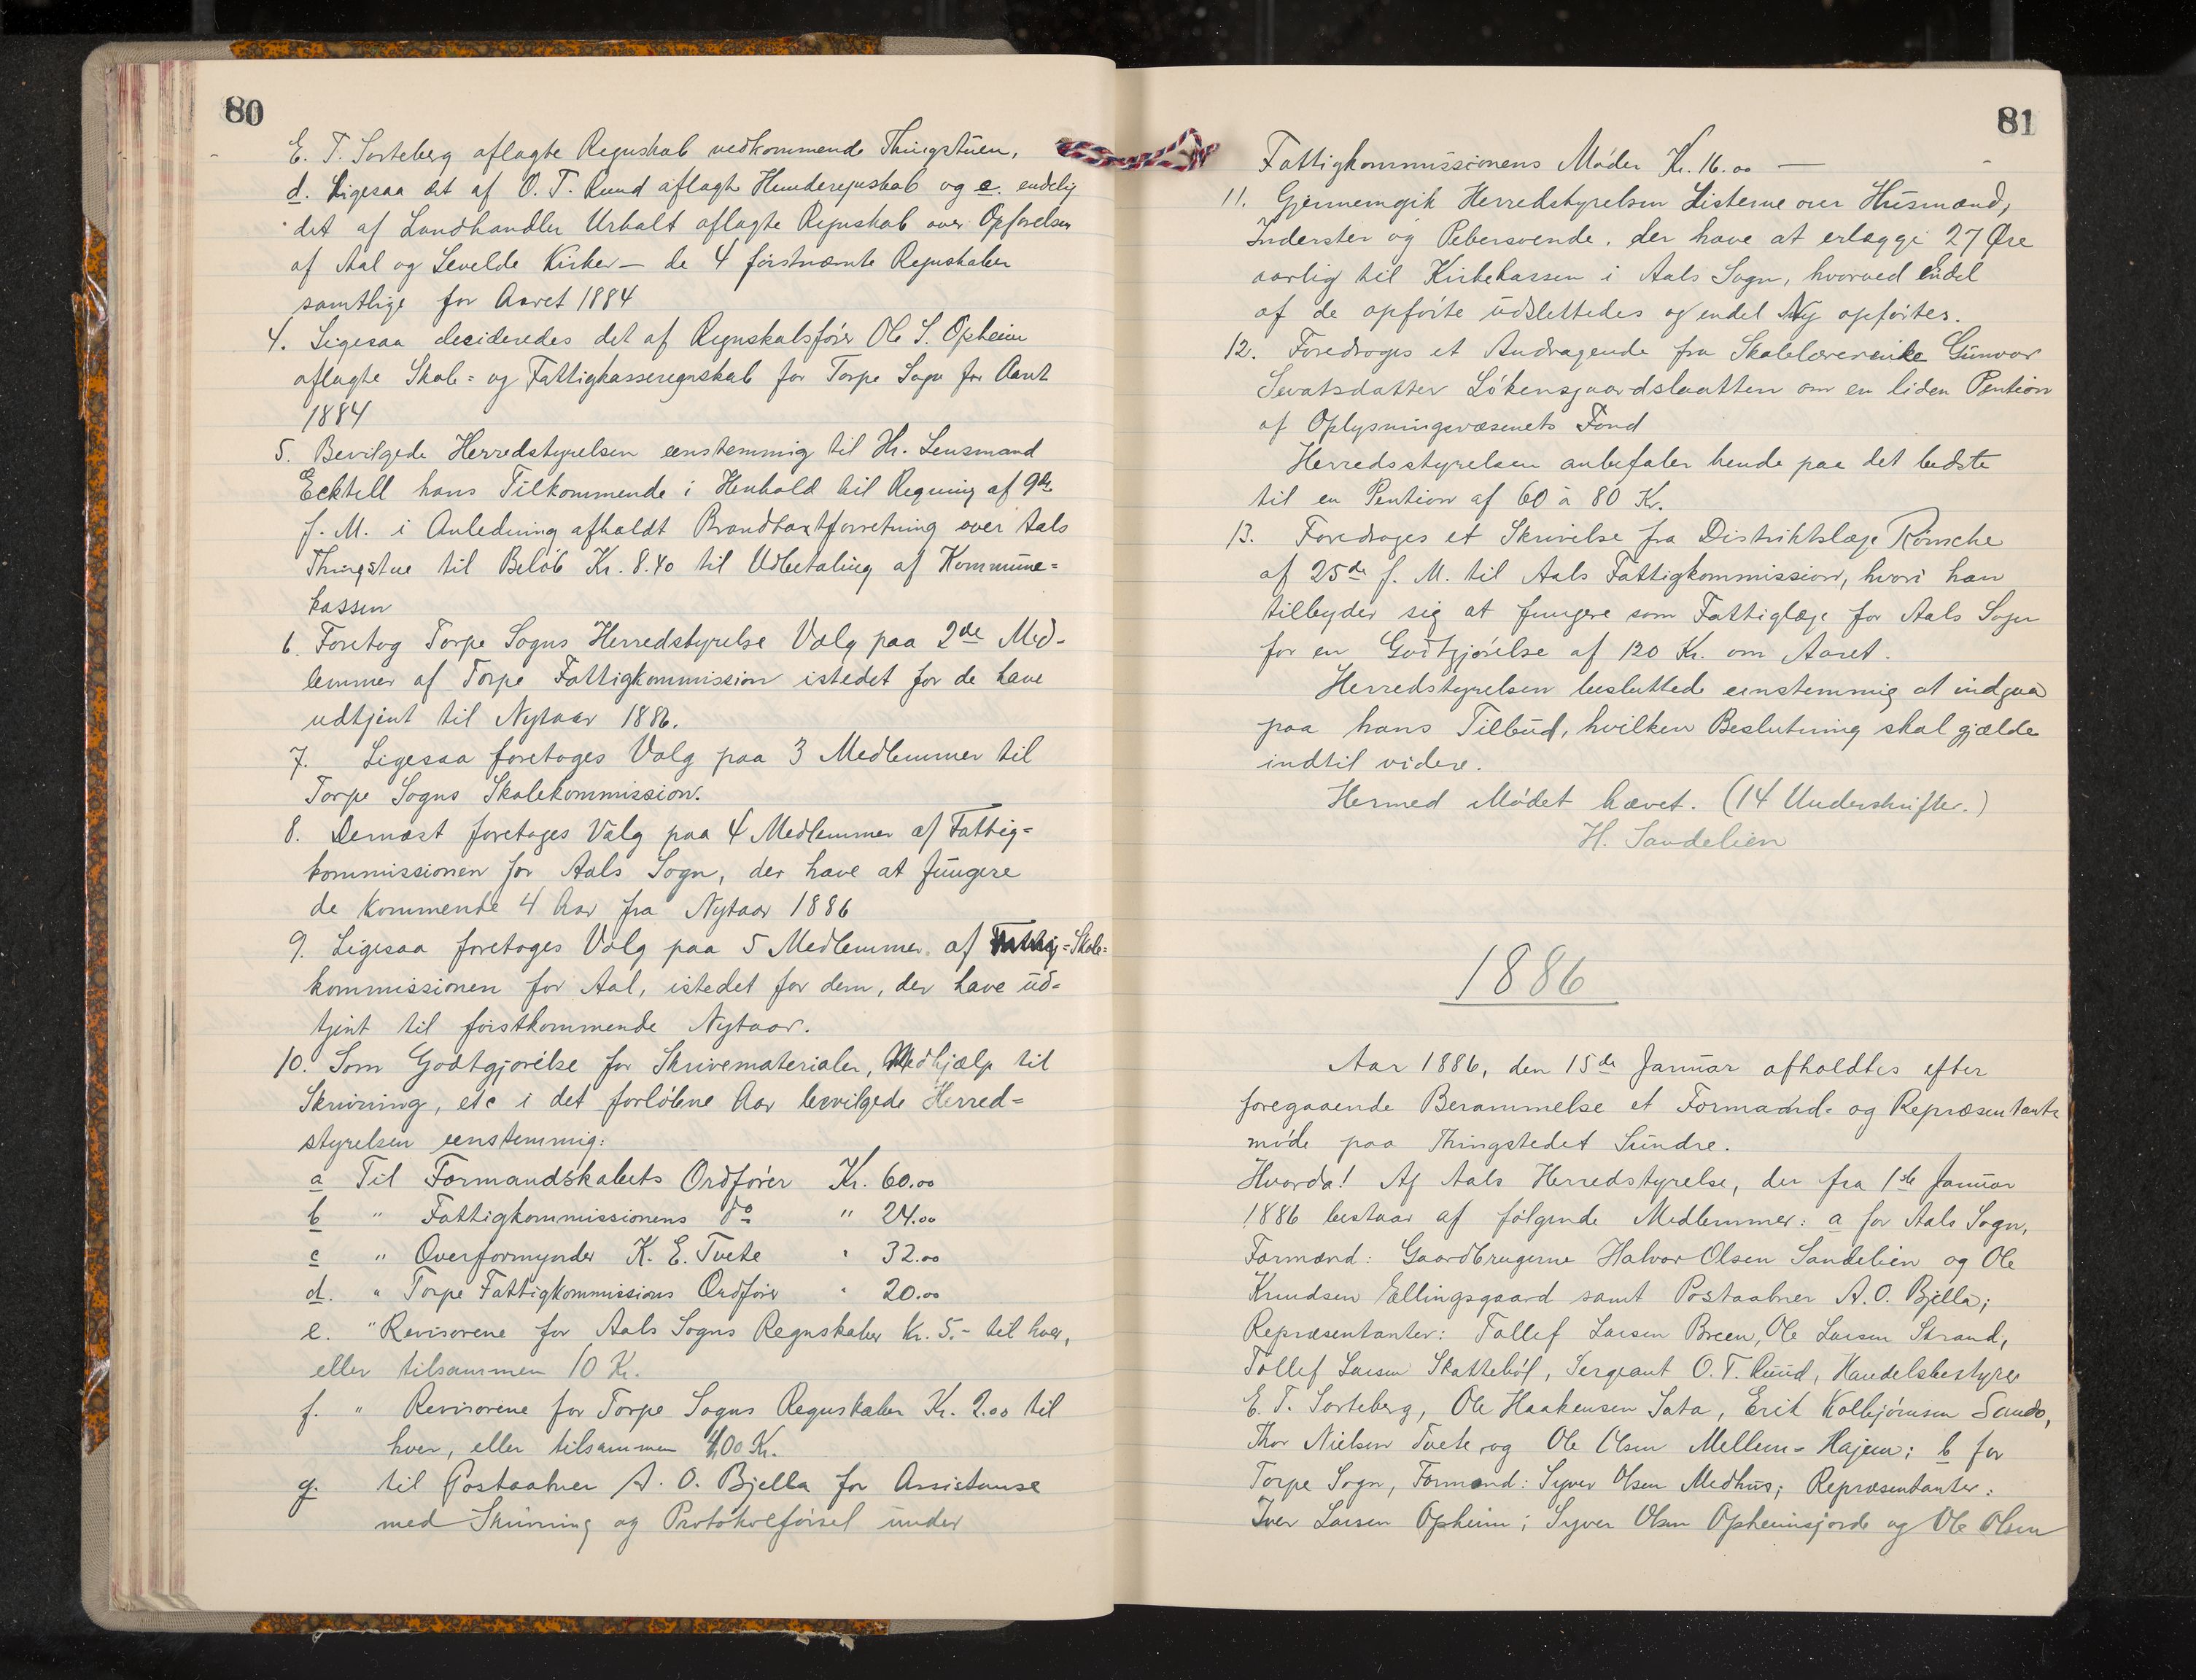 80
E. T. Sorteberg aflagte Regnskab vedkommende Thingstuen,
d. Ligesaa det af O. T. Ruud aflagte Hunderegnskab og e. endelig
det af Landhandler Urhalt aflagte Regnskab over Opførelsen
af Aal og Levelde Kirker — de 4 førstnævnte Regnskaber
samtlige for Aaret 1884
4. Ligesaa decideredes det af Regnskabsfører Ole S. Opheim
aflagte Skole= og Fattigkasseregnskab for Torpe Sogn for Aaret
1884
5. Bevilgede Herredstyrelsen eenstemmig til Hr. Lensmand
Ecktell hans Tilkommende i Henhold til Regning af 9de
f. M. i Anledning afholdt Brandtaxtforretning over Aals
Thingstue til Beløb Kr. 8.40 til Udbetaling af Kommune=
kassen
6. Foretog Torpe Sogns Herredstyrelse Valg paa 2de Med-
lemmer af Torpe Fattigkommission istedet for de have
udtjent til Nytaar 1886.
7. Ligesaa foretoges Valg paa 3 Medlemmer til
Torpe Sogns Skolekommission.
8. Dernæst foretoges Valg paa 4 Medlemmer af Fattig=
kommissionen for Aals Sogn, der have at fungere
de kommende 4 Aar fra Nytaar 1886
9. Ligesaa foretoges Valg paa 5 Medlemmer af Fattig=Skole=
kommissionen for Aal, istedet for dem, der have ud=
tjent til førstkommende Nytaar.
10. Som Godtgjørelse for Skrivematerialer, Medhjælp til
Skrivning, etc i det forløbne Aar bevilgede Herred=
styrelsen eenstemmig:
a Til Formandskabets Ordfører Kr. 60.00
b " Fattigkommissionens do " 24.00
c " Overformynder K. E. Tvete " 32.00
d. " Torpe Fattigkommissions Ordfører " 20.00
e. " Revisorene for Aals Sogns Regnskaber Kr. 5.- til hver,
eller tilsammen 10 Kr.
f. " Revisorene for Torpe Sogns Regnskaber Kr. 2.00 til
hver, eller tilsammen 4,00 Kr.
g. til Postaabner A. O. Bjella for Assistanse
med Skrivning og Protokolførsel under
81
Fattigkommissionens Møder Kr. 16.00 —
11. Gjennemgik Herredstyrelsen Listerne over Husmænd,
Inderster og Pebersvende, der have at erlægge 27 Øre
aarlig til Kirkekassen i Aals Sogn, hvorved endel
af de opførte udslettedes og endel Ny opførtes.
12. Foredroges et Andragende fra Skolelærerenke Gunvor
Sevatsdatter Løkensgaardslaatten om en liden Pention
af Oplysningsvæsenets Fond
Herredsstyrelsen anbefaler hende paa det bedste
til en Pention af 60 à 80 Kr.
13. Foredroges et Skrivelse fra Distriktslæge Rönsche
af 25de f. M. til Aals Fattigkommission, hvori han
tilbyder sig at fungere som Fattiglæge for Aals Sogn
for en Godtgjørelse af 120 Kr. om Aaret.
Herredstyrelsen besluttede eenstemmig at indgaa
paa hans Tilbud, hvilken Beslutning skal gjælde
indtil videre.
Hermed Mødet hævet. (14 Underskrifter.)
H. Sandelien
1886
Aar 1886, den 15de Januar afholdtes efter
foregaaende Berammelse et Formænd- og Repræsentant=
møde paa Thingstedet Sundre.
Hvorda! Af Aals Herredstyrelse, der fra 1ste Januar
1886 bestaar af følgende Medlemmer: a for Aals Sogn,
Formænd: Gaardbrugerne Halvor Olsen Sandelien og Ole
Knudsen Ellingsgaard samt Postaabner A. O. Bjella;
Repræsentanter: Tollef Larsen Breen, Ole Larsen Strand,
Tollef Larsen Skattebøl, Sergeant O. T. Ruud, Handelsbestyrer
E. T. Sorteberg, Ole Haakensen Sata, Erik Kolbjørnsen Sando,
Thor Nielsen Tvete og Ole Olsen Mellem-Hajem; b for
Torpe Sogn, Formand: Syver Olsen Medhus; Repræsentanter:
Iver Larsen Opheim; Syver Olsen Opheimsjorde og Ole Olsen